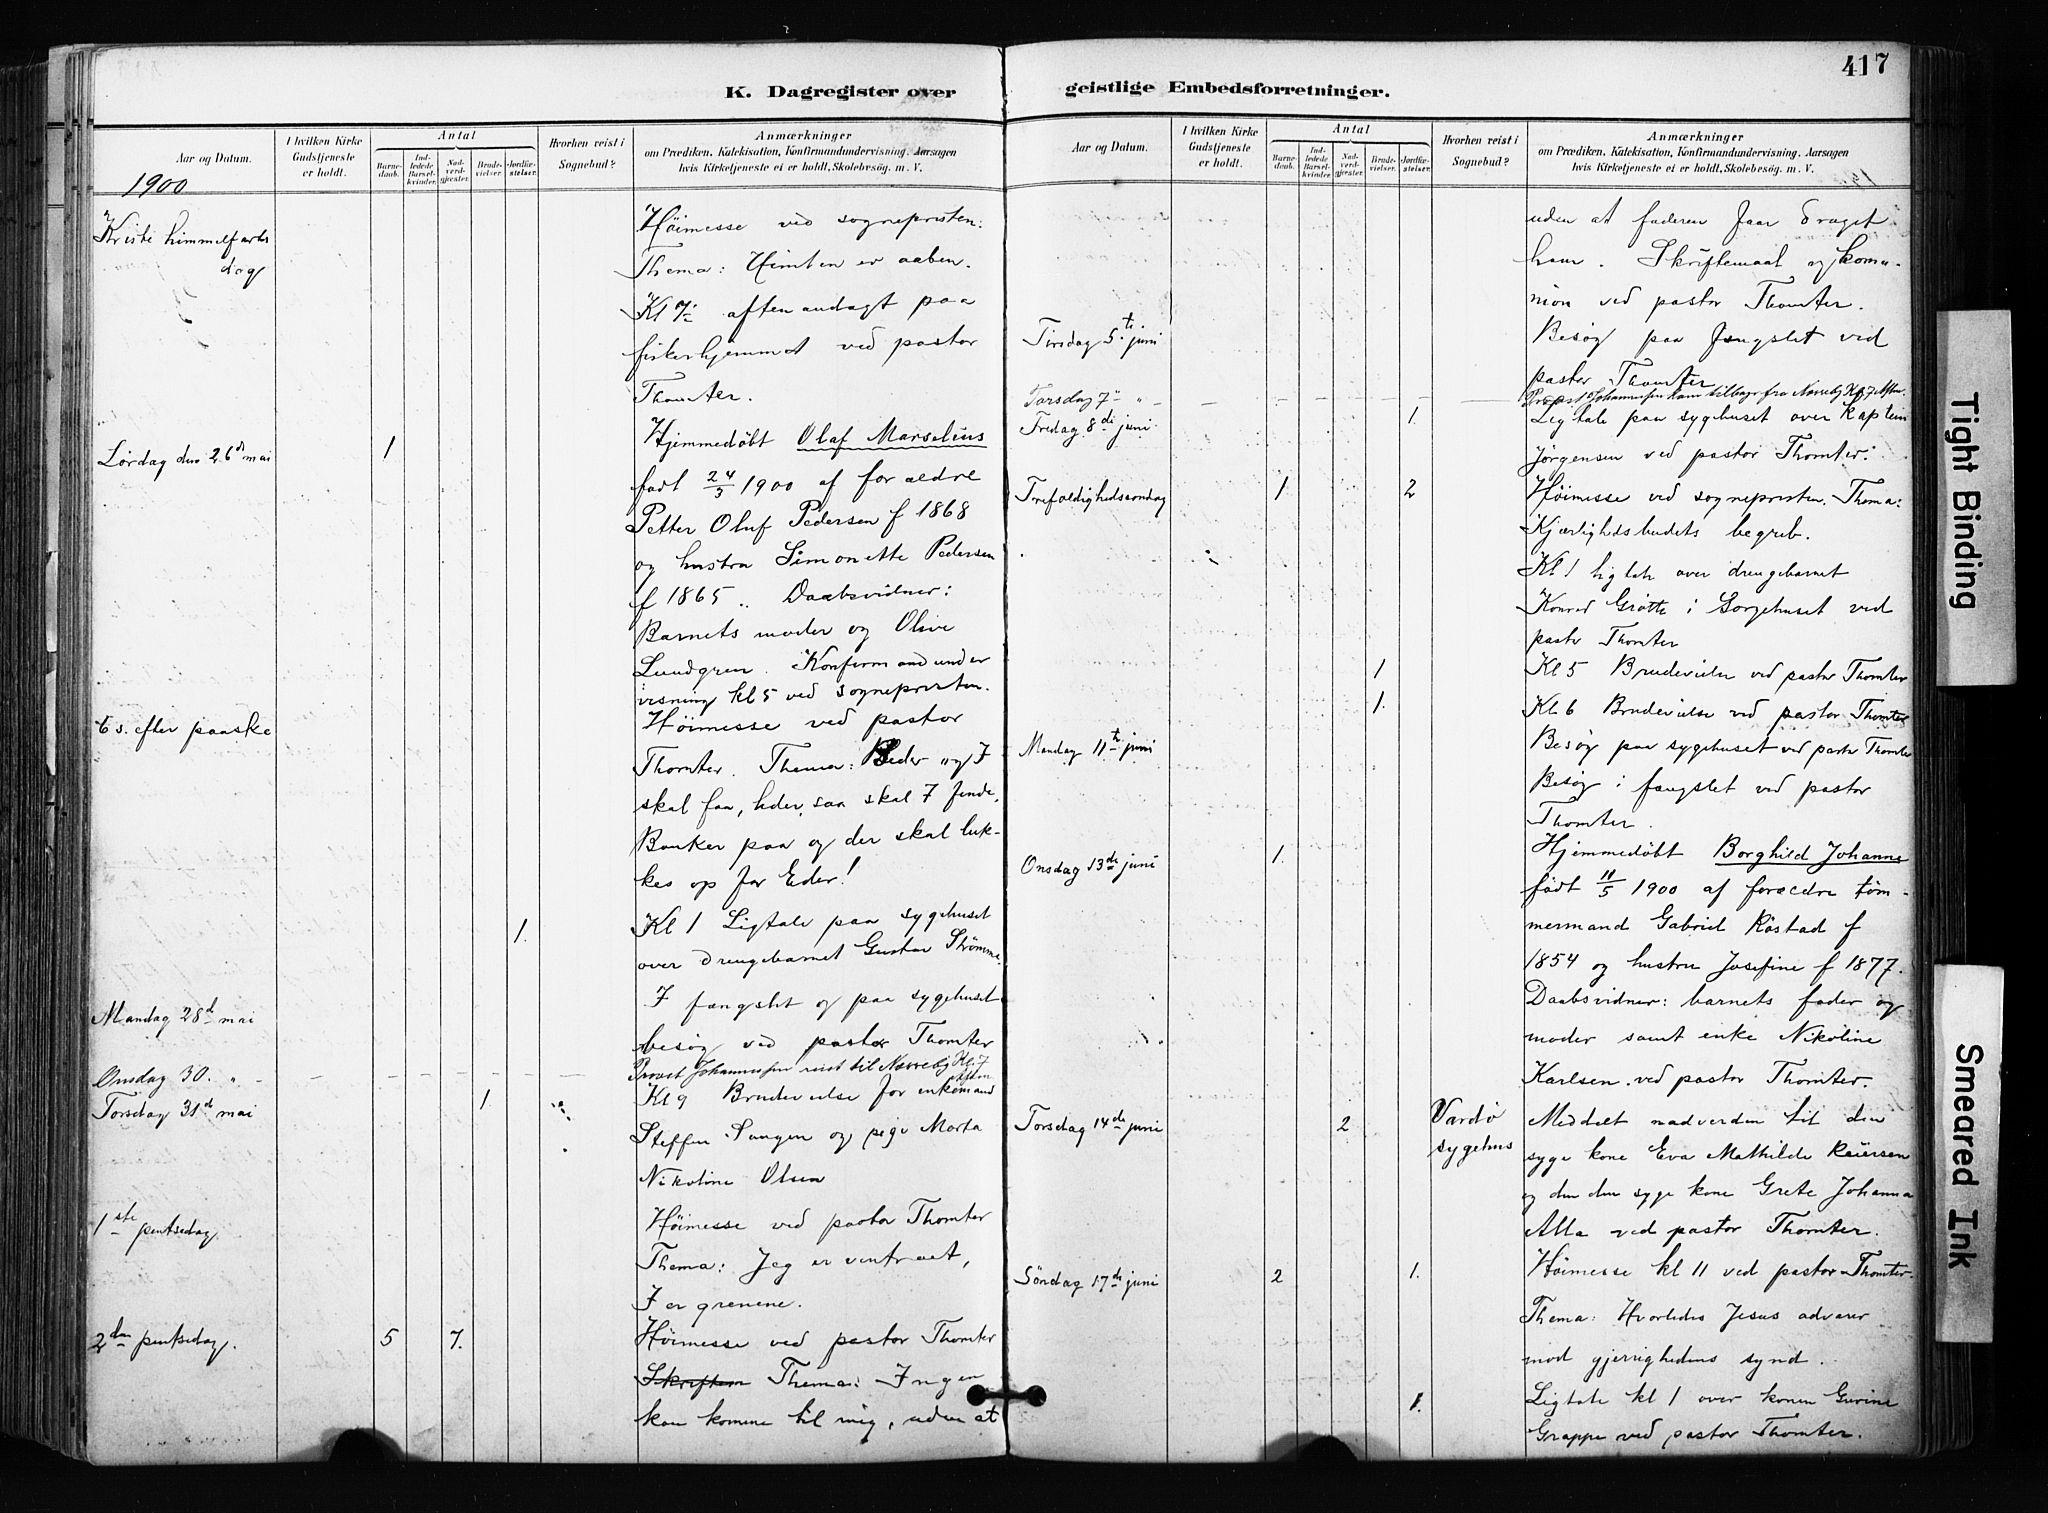 417
K. Dagregister over geistlige Embedsforretninger.
Aar og Datum.
I hvilken Kirke Gudstjeneste er holdt.
Antal
Barnedaab.
Indledede Barselkvinder.
Nadverdgjester.
Brudevielser.
Jordfæstelser.
Hvorhen reist i Sognebud?
Anmærkninger
om Prædiken, Katekisation, Konfirmandundervisning, Aarsagen
hvis Kirketjeneste ei er holdt, Skolebesøg. m. V.
1900
Kristi himmelfarts
dag
Höimesse ved sognepresten:
Thema: Himlen er aaben.
Kl 7½ aftenandagt paa
fiskerhjemmet ved pastor
Thomter.
Lørdag den 26de mai
1
Hjemmedöbt Olaf Marselius
født 24/3 1900 af forældre
Petter Oluf Pedersen f 1868
og hustru Simonette Pedersen
f 1865 .. Daabsvidner:
Barnets moder og Olive
Lundgren. Konfirmandunder
visning kl 5 ved sognepresten.
6 s. efter paaske
Höimesse ved pastor
Thomter. Thema: Beder og I
skal faa, leder, saa skal I finde,
Banker paa og der skal luk-
kes op for Eder!
1.
Kl 1 Ligtale paa sygehuset
over drengebarnet Gustav Strömme.
Mandag 28de mai
I fængslet og paa sygehuset
besøg ved pastor Thomter
Onsdag 30. " - - - - - - -
Provst Johannessen reist til Næsseby Kl. 7 Aften
Torsdag 31te mai
1.
Kl 9 Brudevielse for enkemand
Steffen Sangen og pige Marta
Nikoline Olsen
1ste pintsedag
Höimesse ved pastor Thomter
Thema: Jeg er vintræet,
I er grenene.
2den pintsedag.
5 7.
Höimesse ved pastor Thomter
Skriftem Thema: Ingen
kan komme til mig, uden at
Aar og Datum.
I hvilken Kirke Gudstjeneste er holdt.
Antal
Barnedaab.
Indledede Barselkvinder.
Nadverdgjester.
Brudevielser.
Jordfæstelser.
Hvorhen reist i Sognebud?
Anmærkninger
om Prædiken, Katekisation, Konfirmandundervisning, Aarsagen
hvis Kirketjeneste ei er holdt, Skolebesøg. m. V.
uden at faderen faar draget
ham. Skriftemaal og komu-
nion ved pastor Thomter.
Tirsdag 5te juni
Besøg paa fengslet ved
pastor Thomter
Torsdag 7de " - - - - - -
Provst Johannessen kom tilbage fra Næsseby Kl. 7 Aften.
Fredag 8de juni
1.
Ligtale paa sygehuset over kaptein
Jørgensen ved pastor Thomter.
Trefoldighedssøndag
1 2
Höimesse ved sognepresten. Thema:
Kjærlighedsbudets begreb.
Kl 1 ligtale over drengebarnet
Konrad Grøtte i Sorgehuset ved
pastor Thomter
1
Kl 5 Brudevielse ved pastor Thomter
1.
Kl 6 Brudevielse ved pastor Thomter
Mandag 11te juni
Besøg paa sygehuset ved pastor Thomter
Besøg i fængslet ved pastor
Thomter.
Onsdag 13de juni
1.
Hjemmedöbt Borghild Johanne
født 11/5 1900 af forældre töm-
mermand Gabriel Röstad f
1854 og hustru Josefine f 1877.
Daabsvidner: barnets fader og
moder samt enke Nikoline
Karlsen. ved pastor Thomter.
Torsdag 14de juni
2
Vardø
sygehus
Meddelt nadverden til den
syge kone Eva Mathilde Reiersen
og den den syge kone Grete Johanna
Alla ved pastor Thomter.
Söndag 17de juni
2 1.
Höimesse kl 11 ved pastor Thomter.
Thema: Hvorledes Jesus advarer
mod gjerrighedens synd.
1.
Ligtale kl 1 over konen Gurine
Grappe ved pastor Thomter.
Tight Binding
Smeared Ink